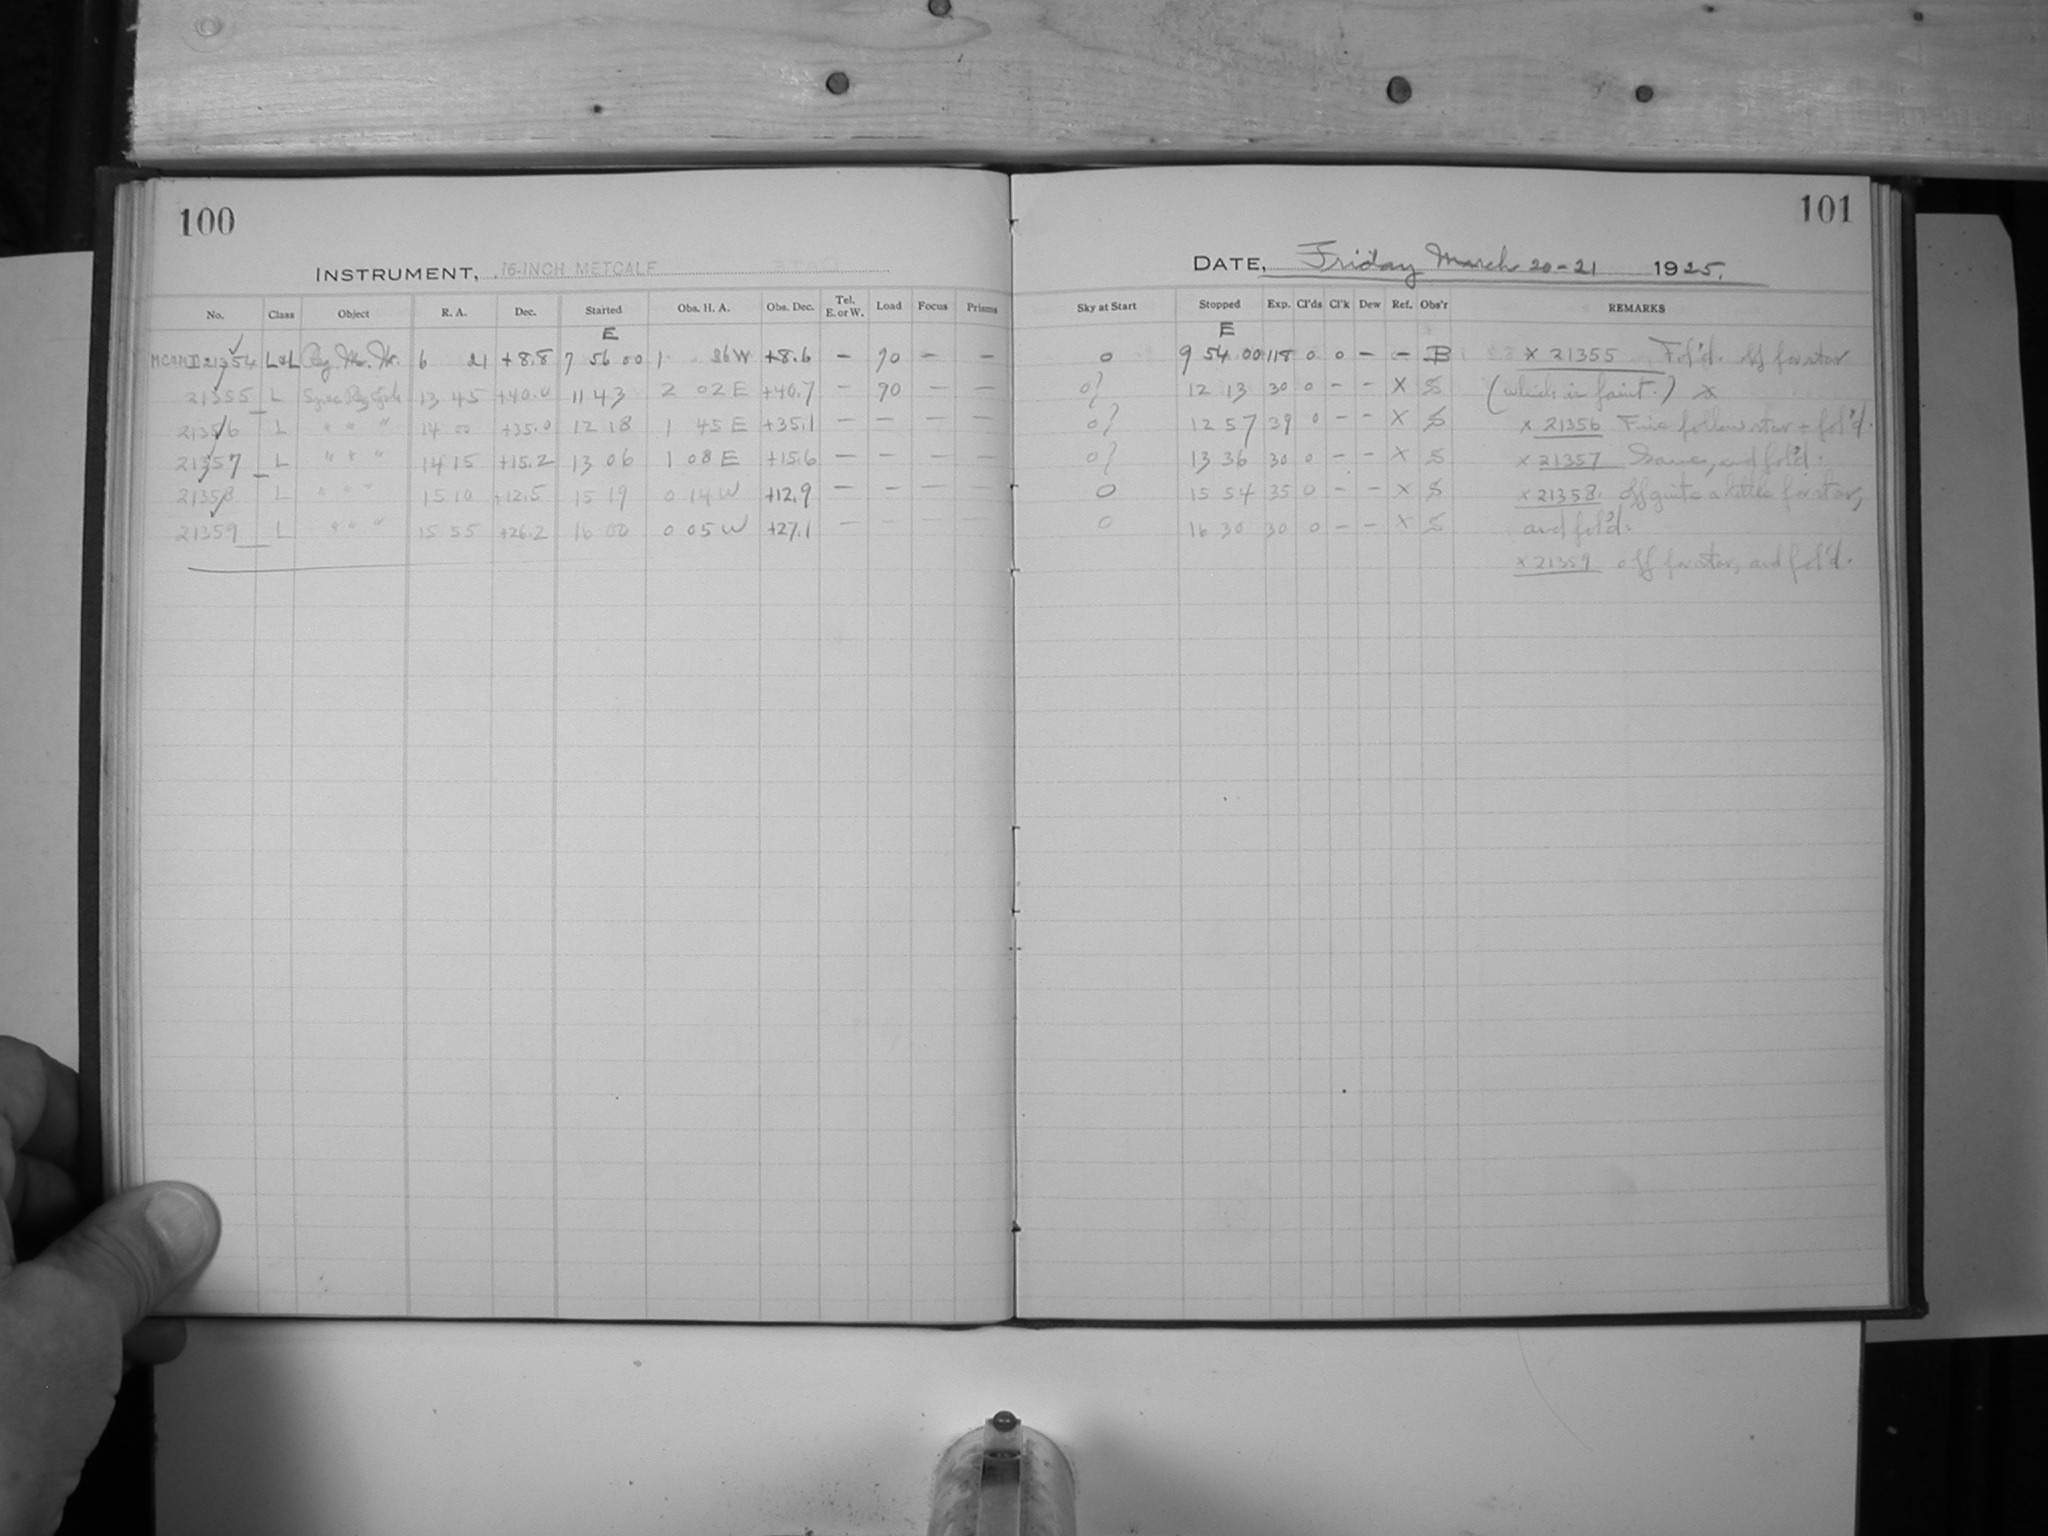 100
INSTRUMENT, 16-INCH METCALF
No. Class Object R. A. Dec. Started Obs. H. A. Obs. Dec. Tel. E. or W. Load Focus Prisms
E
21354 L&L 6 21 +8.8 7 56 00 1 36W +8.6 – 90 – –
21355 L 13 45 +40.0 11 43 2 02 E +40.7 – 90 – –
21356 L " " " 14 00 +35.0 12 18 1 45 E +35.1 – – – –
21357 L " " " 14 15 +15.2 13 06 1 08 E +15.6 – – – –
21358 L " " " 15 10 +12.5 15 19 0 14 W +12.9 – – – –
21359 L " " " 15 55 +26.2 16 00 0 05 W +27.1 – – – –
101
DATE, Friday March 20-21 1925.
Sky at Start Stopped Exp. Cl'ds Cl'k Dew Ref. Obs'r REMARKS
E
0 9 54 00 118 0 0 – – B x 21355 Fol'd. off for star
12 13 30 0 – – X S (which is faint.) x
12 57 39 0 – – X S x 21356 follow star + fol'd.
13 36 30 0 – – X S x 21357 Same, and fol'd.
0 15 54 35 0 – – X S x 21358. off quite a little for star,
0 16 30 30 0 – – X S and fol'd.
x 21359 off for star, and fol'd.